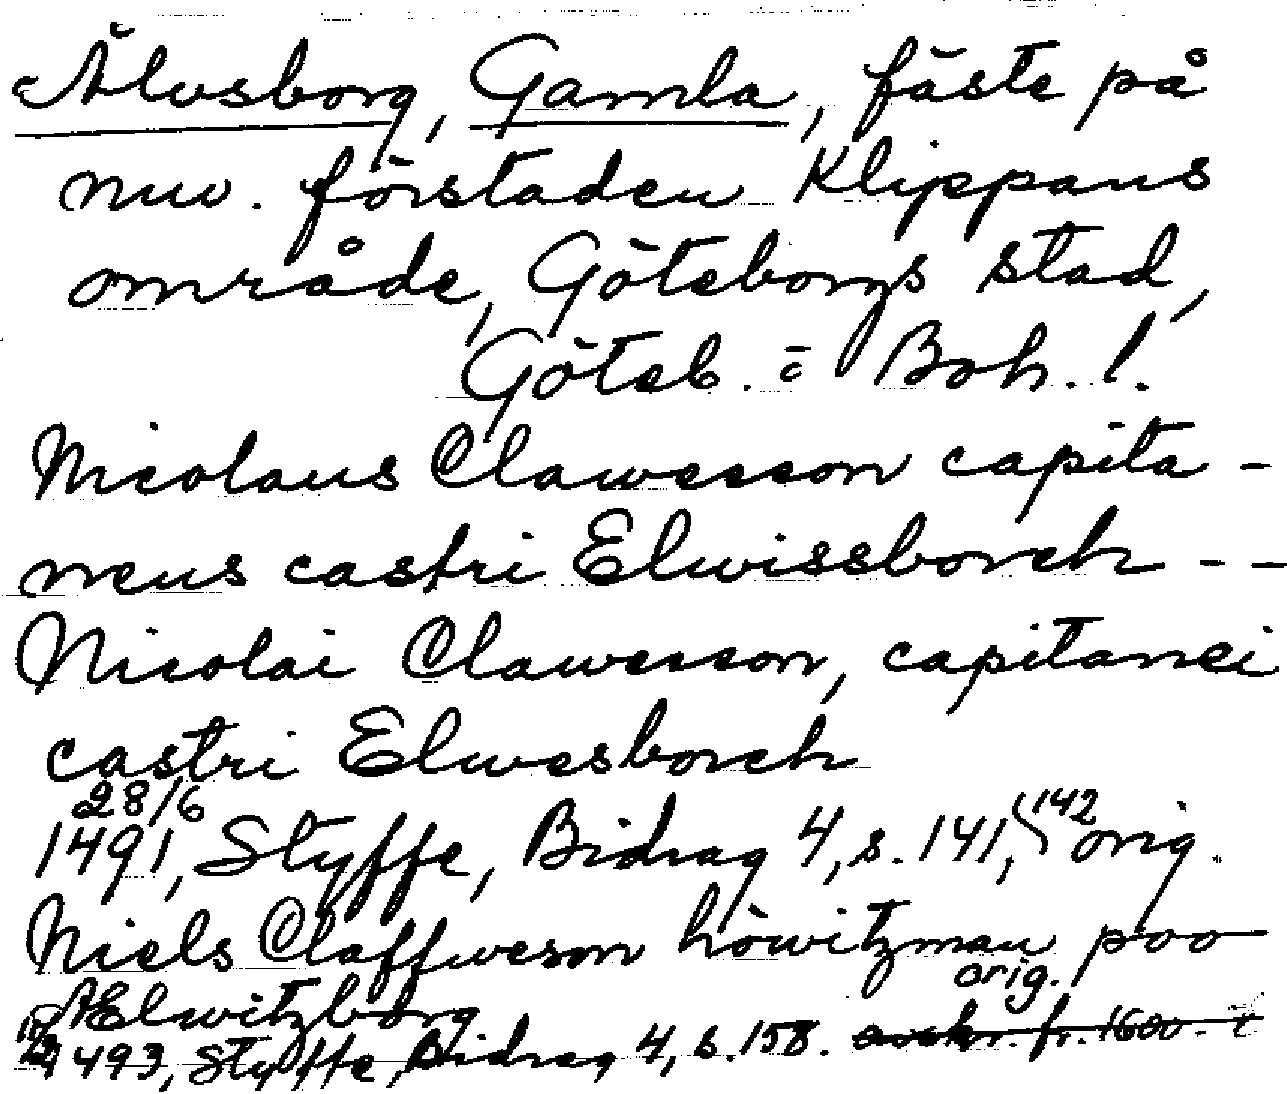 Älvsborg, Gamla, fäste på
nuv. förstaden Klippans
område, Göteborgs stad,
Göteb. o Boh. l.
Nicolaus Clawesson capita-
neus castri Elwissborch --
Nicolai Clawesson, capitanei
castri Elwesborch
28/6
1491, Styffe, Bidrag 4, s. 141, 142 orig.
Niels Claffweson höwitzman poo
Ælwitzborg orig.
1493, Styffe, Bidrag 4, s. 158. avskr. fr. 1600-t